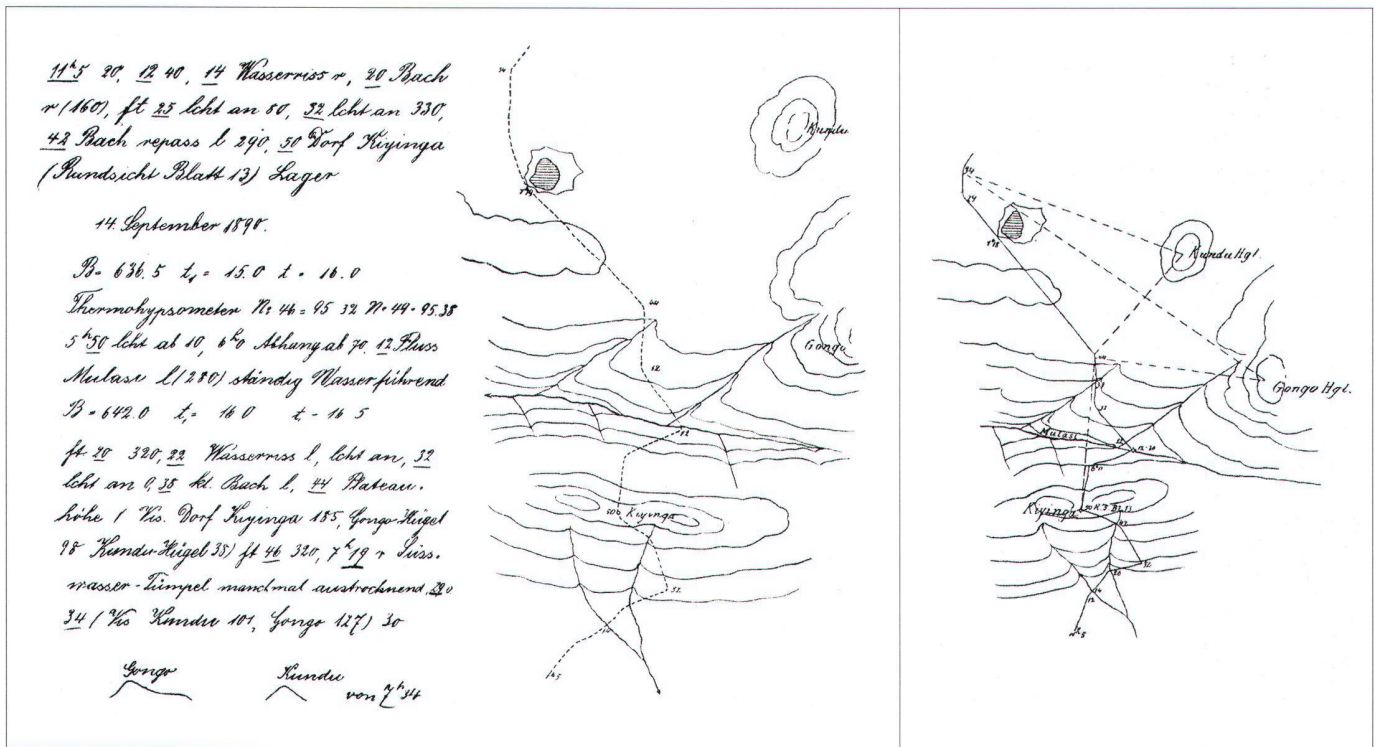 11ʰ5 20, 12 40, 14 Wasserriss r, 20 Bach
r (160), ft 25 lcht an 80, 32 lcht an 330,
42 Bach repass l 290, 50 Dorf Kiyinga
(Rundsicht Blatt 13) Lager
14. September 1890.
B = 636.5 t, = 15.0 t = 16.0
Thermohypsometer N: 46 = 95 32 N = 49 = 95.38
5ʰ50 lcht ab 10, 6ʰ0 Abhang ab 70. 12 Fluss
Mulasi l (280) ständig Wasser führend
B = 642.0 t, = 16 0 t = 16 5
ft 20 320, 22 Wasserriss l, lcht an, 32
lcht an 0, 38 kl. Bach l, 44 Plateau-
höhe ( Vis. Dorf Kiyinga 185, Gongo Hügel
98 Kundu-Hügel 35) ft 46 320, 7ʰ19 r Süss-
wasser-Tümpel manchmal austrocknend,
34 ( Vis Kundu 101, Gongo 127) 30
Gongo
Kundu
von 7ʰ34
34
Kundu
44
Gongo
12
12
500 Kiyinga
32
14
34
29
Kundu Hgl.
Gongo Hgl.
Mulasi
Kiyinga
32
20
14
12